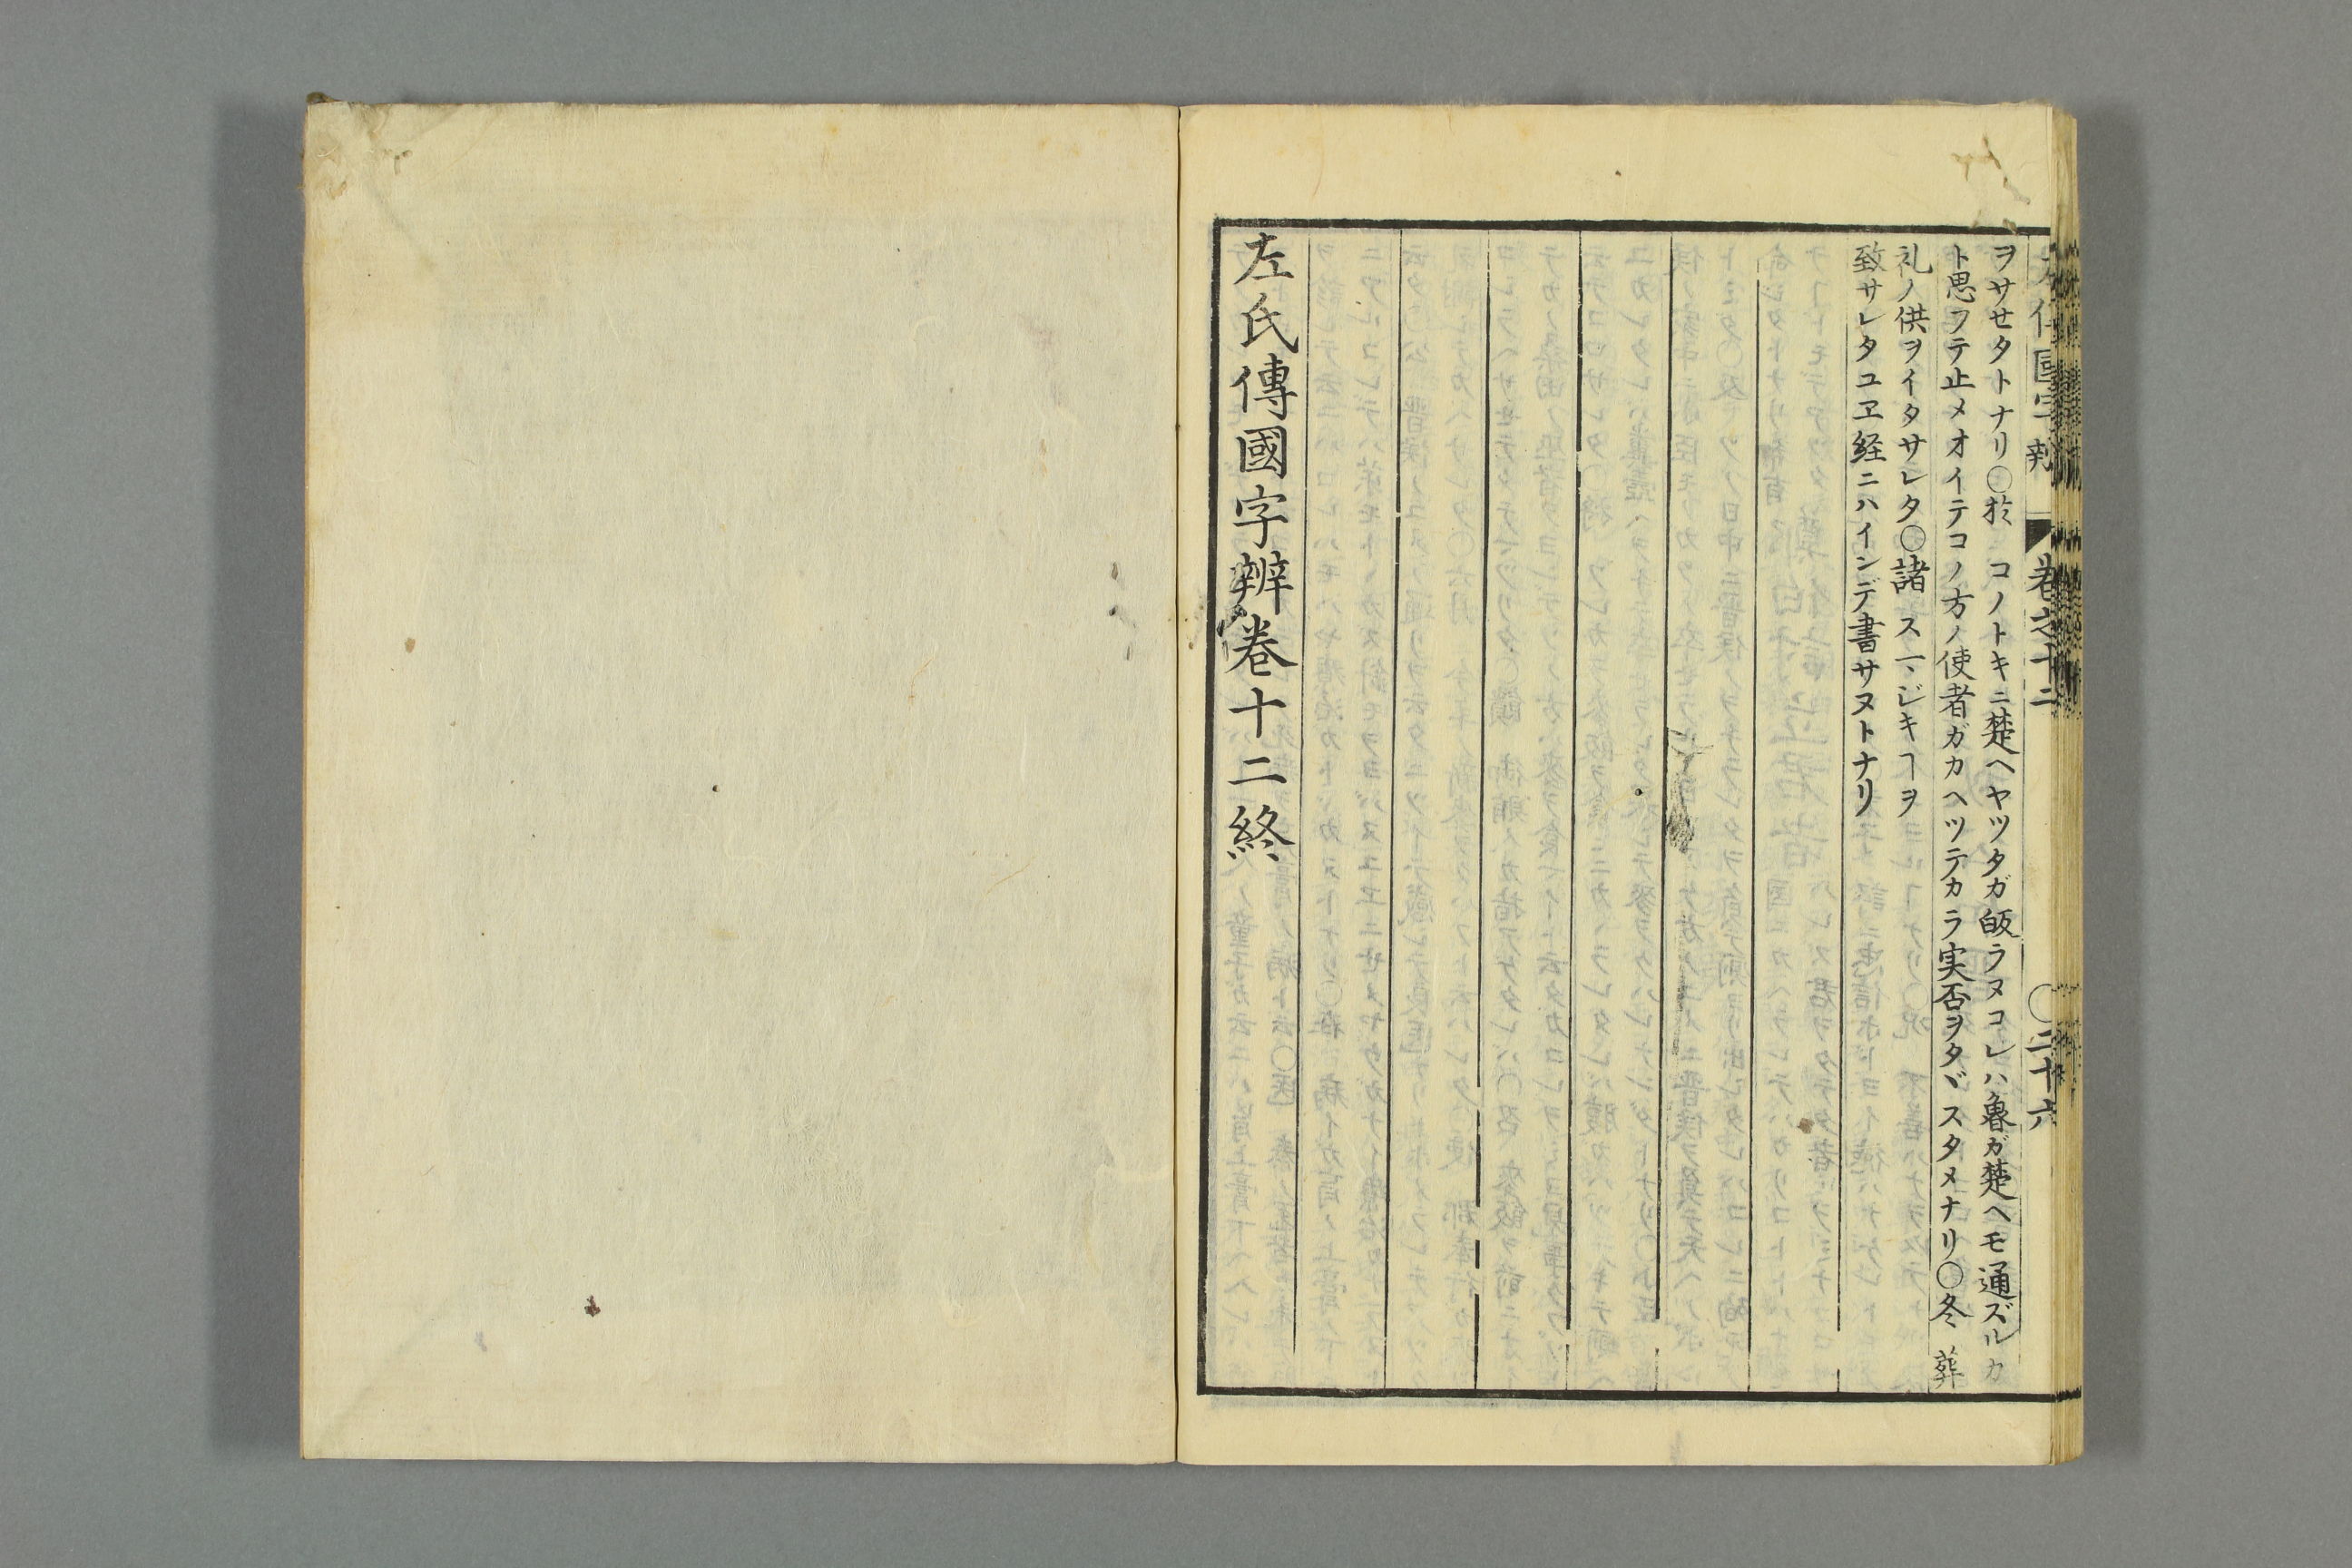 卷之十二
○二十六
ヲサセタトナリ○於　コノトキニ楚ヘヤツタガ皈ラヌコレハ魯ガ楚ヘモ通ズルカ
ト思フテ止メオイテコノ方ノ使者ガカヘツテカラ実否ヲタヾスタメナリ○冬　葬
礼ノ供ヲイタサレタ○諸　ス一、ジキヿヲ
致サレタユヱ経ニハインデ書サヌトナリ
左氏傳國字辨卷十二終